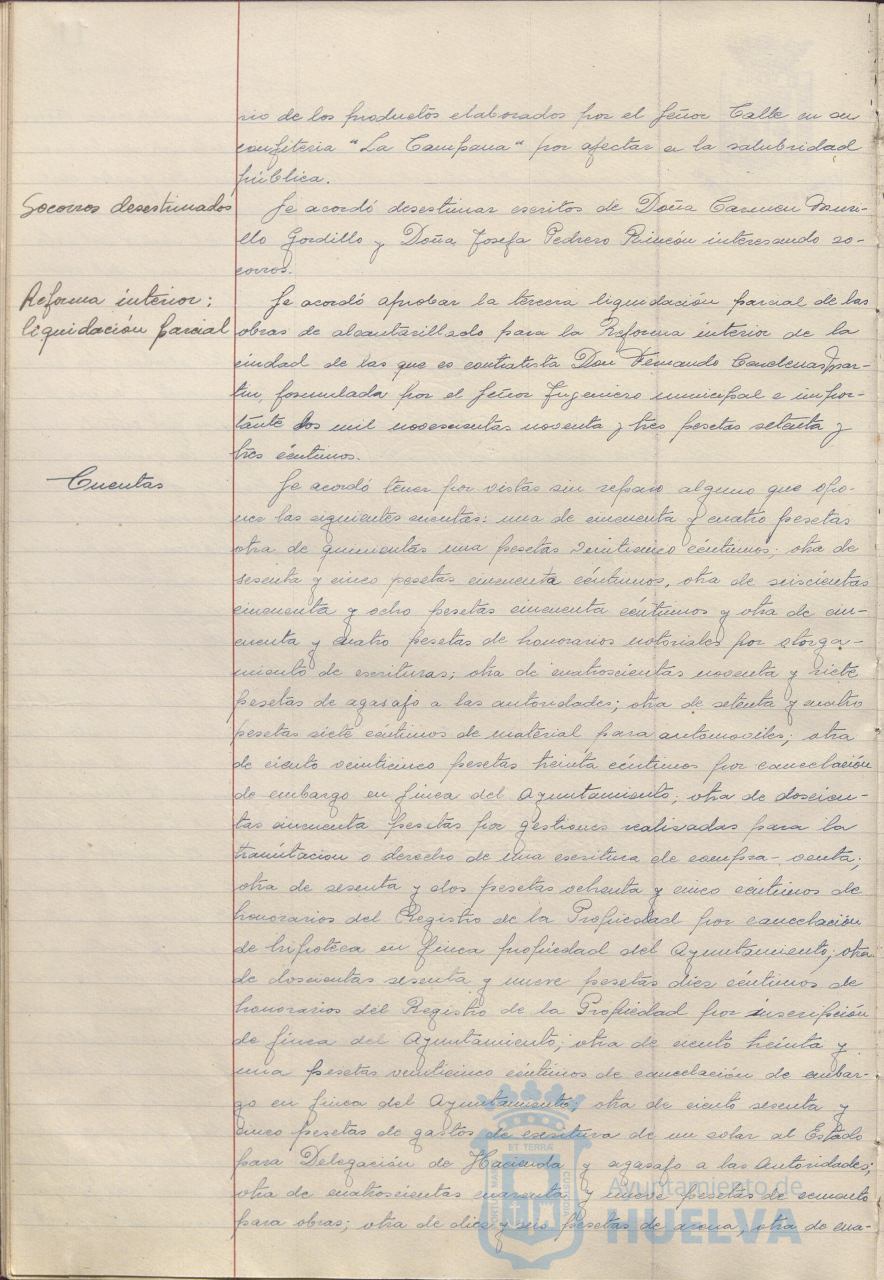 rio de los productos elaborados por el Señor Calle en su
confiteria "La Campana" por afectar a la salubridad
pública.
Socorros desestimados
Se acordó desestimar escritos de Doña Carmen Muri-
llo Gordillo y Doña Josefa Pedrero Rincón interesando so-
corros.
Reforma interior:
liquidación parcial
Se acordó aprobar la tercera liquidación parcial de las
obras de alcantarillado para la Reforma interior de la
ciudad de las que es contratista Don Fernando Cardenas Mar-
tin, formulada por el Señor Ingeniero municipal e impor-
tante dos mil novecientas noventa y tres pesetas setenta y
tres céntimos.
Cuentas
Se acordó tener por vistas sin reparo alguno que opo-
ner las siguientes cuentas: una de cincuenta y cuatro pesetas
otra de quinientas una pesetas veinticinco céntimos; otra de
sesenta y cinco pesetas cincuenta céntimos, otra de seiscientas
cincuenta y ocho pesetas cincuenta céntimos y otra de cin-
cuenta y cuatro pesetas de honorarios notoriales por otorga-
miento de escrituras; otra de cuatroscientas noventa y siete
pesetas de agasajo a las autoridades; otra de setenta y cuatro
pesetas siete céntimos de material para automoviles; otra
de ciento veinticinco pesetas treinta céntimos por cancelación
de embargo en finca del Ayuntamiento; otra de doscien-
tas cincuenta pesetas por gestiones realizadas para la
tramitacion o derecho de una escritura de compra-venta;
otra de sesenta y dos pesetas ochenta y cinco céntimos de
honorarios del Registro de la Propiedad por cancelación
de hipoteca en finca propiedad del Ayuntamiento; otra
de doscientas sesenta y nueve pesetas diez céntimos de
honorarios del Registro de la Propiedad por inscripción
de finca del Ayuntamiento; otra de ciento treinta y
una pesetas veinticinco céntimos de cancelación de embar-
go en finca del Ayuntamiento; otra de ciento sesenta y
cinco pesetas de gastos de escritura de un solar al Estado
para Delegación de Hacienda y agasajo a las Autoridades;
otra de cuatroscientas cuarenta y nueve pesetas de cemento
para obras; otra de diez y seis pesetas de arena, otra de cua-
ET TERRÆ
Ayuntamiento de
HUELVA